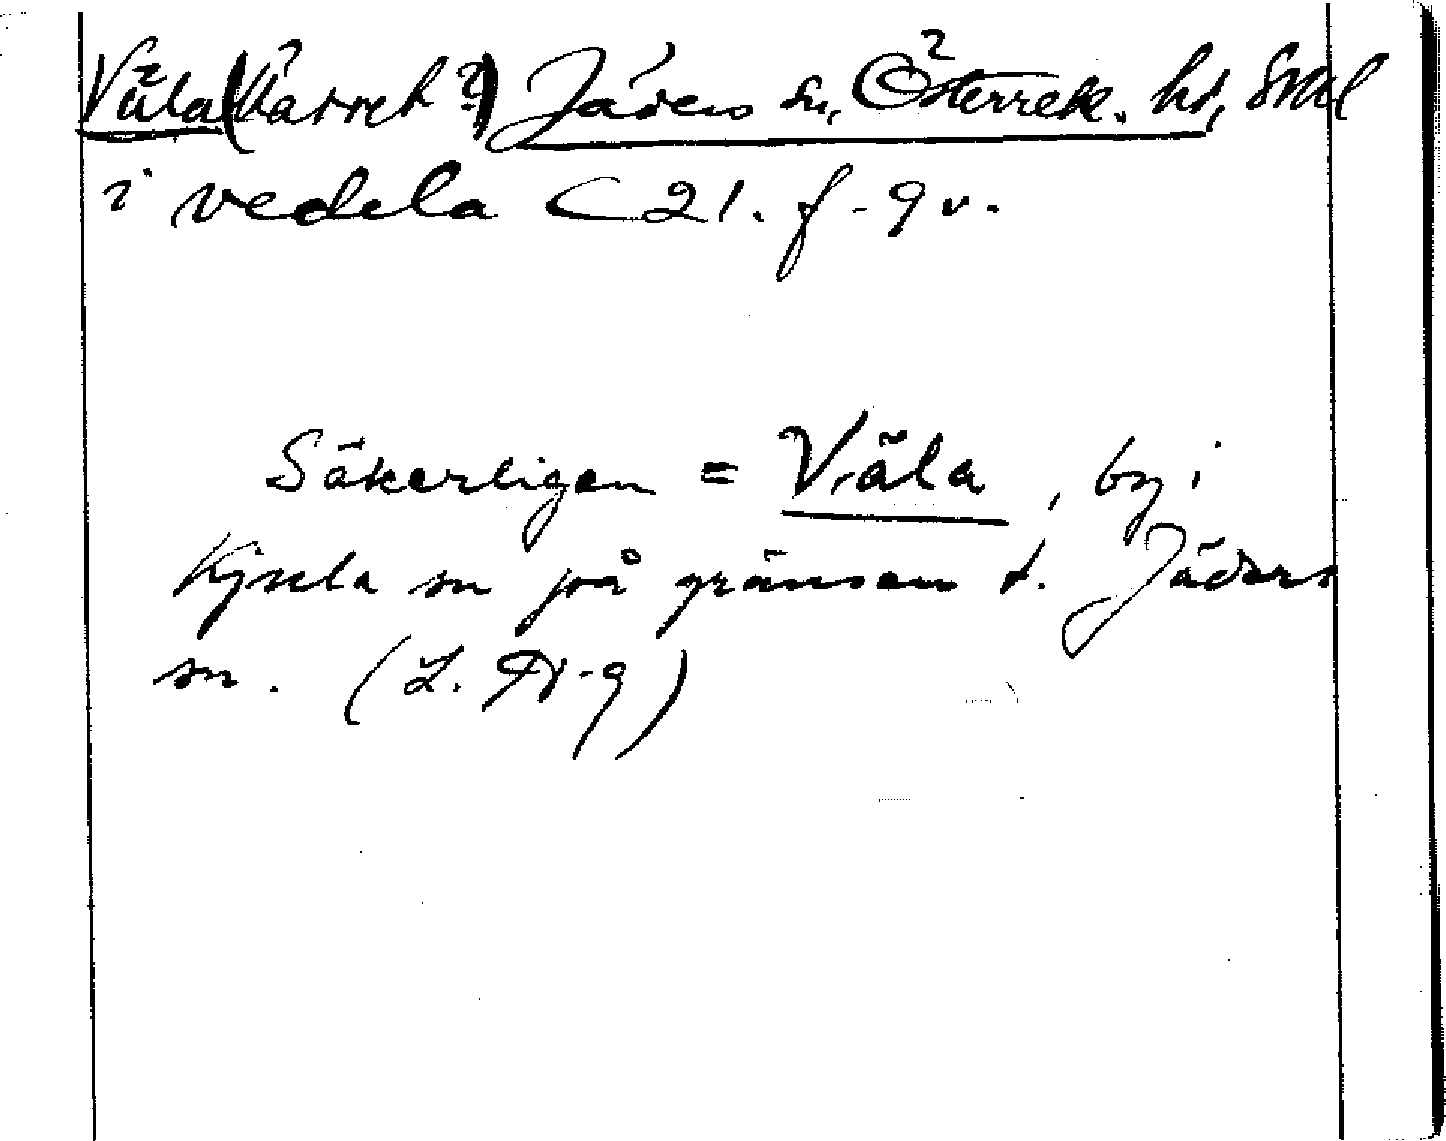 Väla (kärret?) Jäders sn, Österrek. hd, Sml
i vedela C 21. f. 9 v.
Säkerligen = Väla, by i
Kjula sn på gränsen t. Jäders
sn. (L. Fr-g)